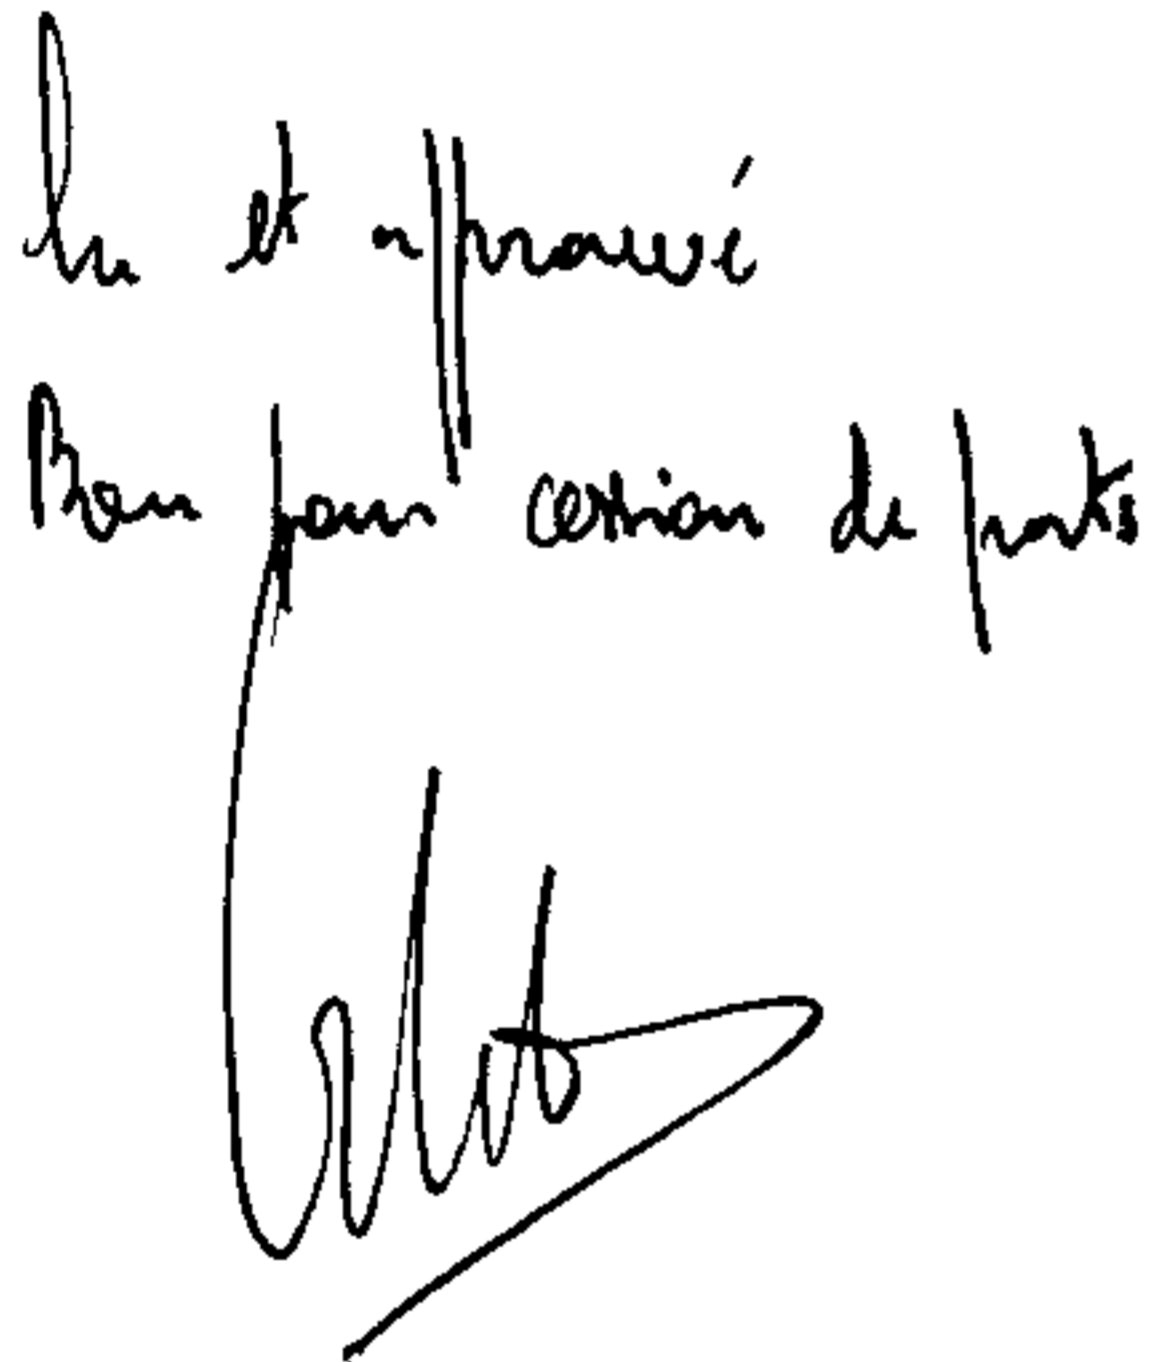 lu et approuvé
Bon pour cession de parts